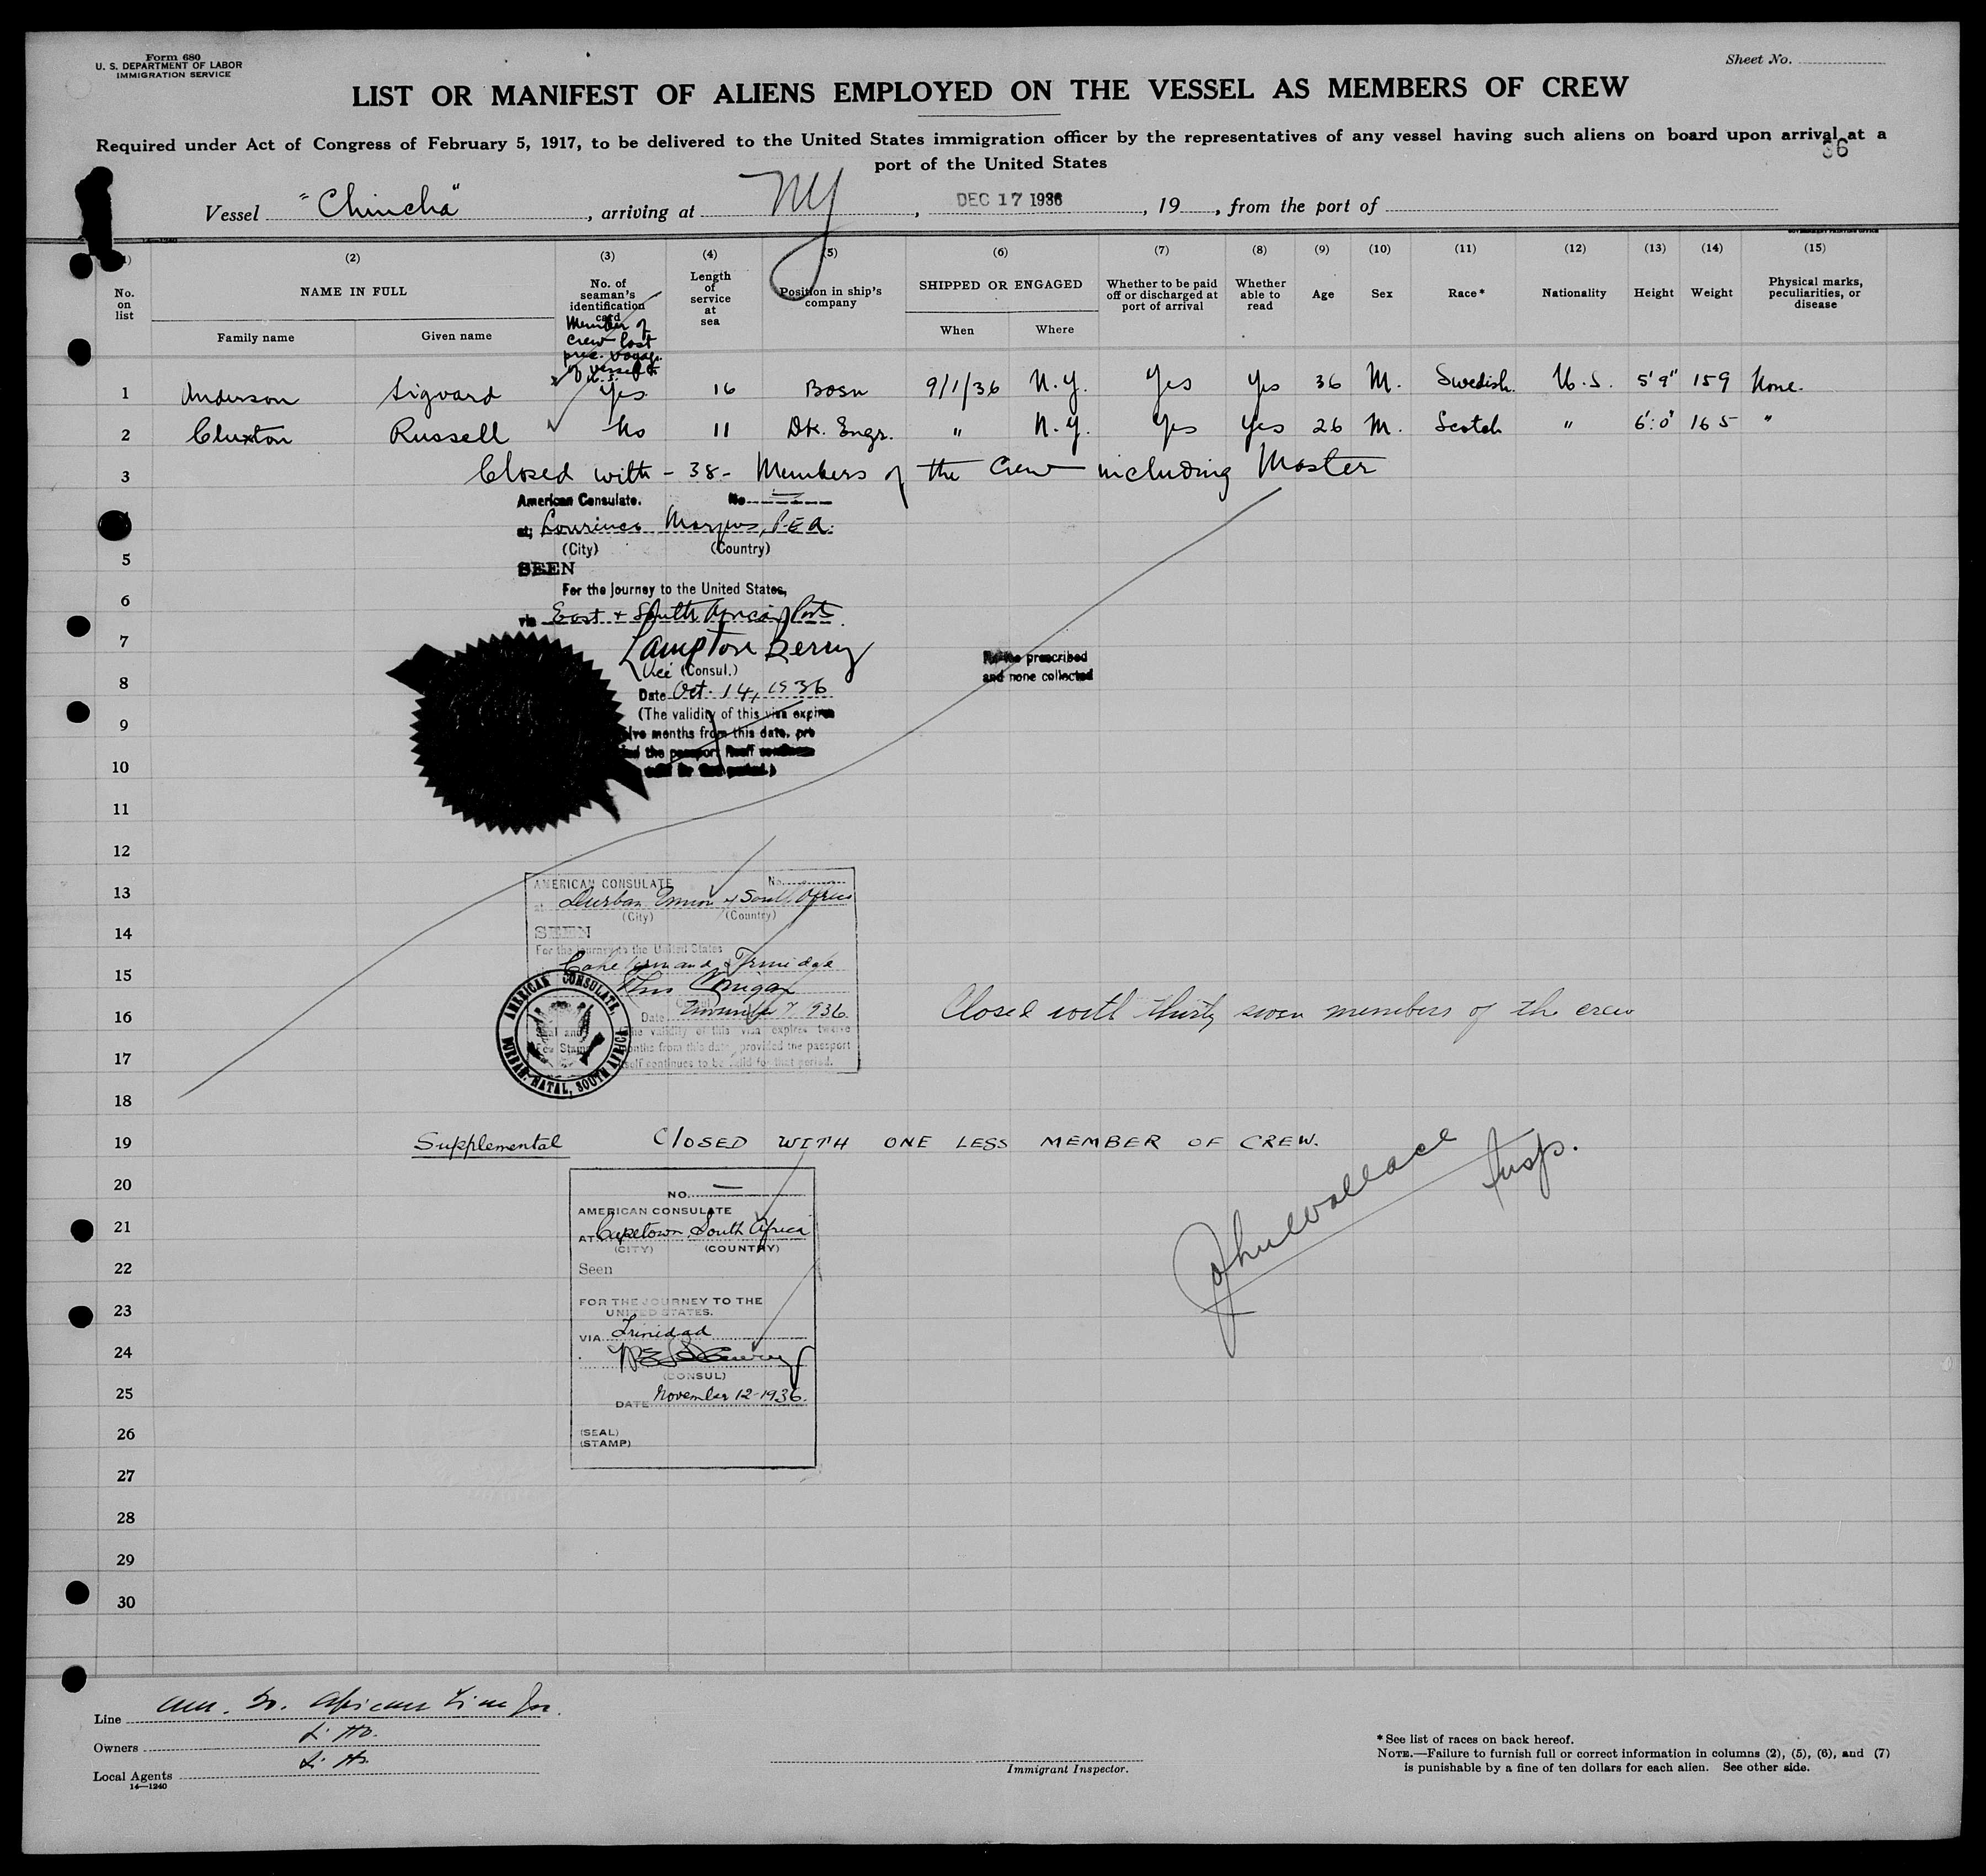 Form 680
U. S. DEPARTMENT OF LABOR
IMMIGRATION SERVICE
Sheet No.
LIST OR MANIFEST OF ALIENS EMPLOYED ON THE VESSEL AS MEMBERS OF CREW
Required under Act of Congress of February 5, 1917, to be delivered to the United States immigration officer by the representatives of any vessel having such aliens on board upon arrival at a
port of the United States
36
Vessel "Chincha", arriving at NY, DEC 17 1936, 19 , from the port of
14—1240
GOVERNMENT PRINTING OFFICE
(2) (3) (4) (5) (6) (7) (8) (9) (10) (11) (12) (13) (14) (15)
No. on list
NAME IN FULL
Family name Given name
No. of seaman's identification card
Member of crew last prec. voyage of vessel to U.S.
Length of service at sea
Position in ship's company
SHIPPED OR ENGAGED
When Where
Whether to be paid off or discharged at port of arrival
Whether able to read
Age
Sex
Race*
Nationality
Height
Weight
Physical marks, peculiarities, or disease
1 Anderson Sigvard Yes 16 Bosn 9/1/36 N.Y. Yes Yes 36 M. Swedish U.S. 5'9" 159 None.
2 Cluxton Russell No 11 Dk. Engr. " N.Y. Yes Yes 26 M. Scotch " 6'0" 165 "
3 Closed with - 38 - Members of the Crew including Master
American Consulate. No.
at Lourenco Marques, P.E.A.
(City) (Country)
5
SEEN
For the Journey to the United States,
6
via East + South African Ports.
7 Lampton Berry
Vice (Consul.)
No fee prescribed
and none collected
8
Date Oct. 14, 1936
(The validity of this visa expires
9
twelve months from this date, pro
10
11
12
13
AMERICAN CONSULATE No.
at Durban Union of South Africa
(City) (Country)
14
SEEN
For the journey to the United States
15
Capetown and Trinidad
16
Date November 7 1936.
Closed with thirty seven members of the crew
The validity of this visa expires twelve
months from this date, provided the passport
17
itself continues to be valid for that period.
AMERICAN CONSULATE, DURBAN, NATAL, SOUTH AFRICA
18
19 Supplemental CLOSED WITH ONE LESS MEMBER OF CREW.
John Wallace Insp.
20
NO.
AMERICAN CONSULATE
21
AT Capetown, South Africa
(CITY) (COUNTRY)
22
Seen
23
FOR THE JOURNEY TO THE
UNITED STATES.
VIA Trinidad
24
(CONSUL)
25
DATE November 12-1936.
26
(SEAL)
(STAMP)
27
28
29
30
Line Am. So. African Line Inc.
Owners
Local Agents
14—1240
Immigrant Inspector.
* See list of races on back hereof.
NOTE.—Failure to furnish full or correct information in columns (2), (5), (6), and (7)
is punishable by a fine of ten dollars for each alien. See other side.